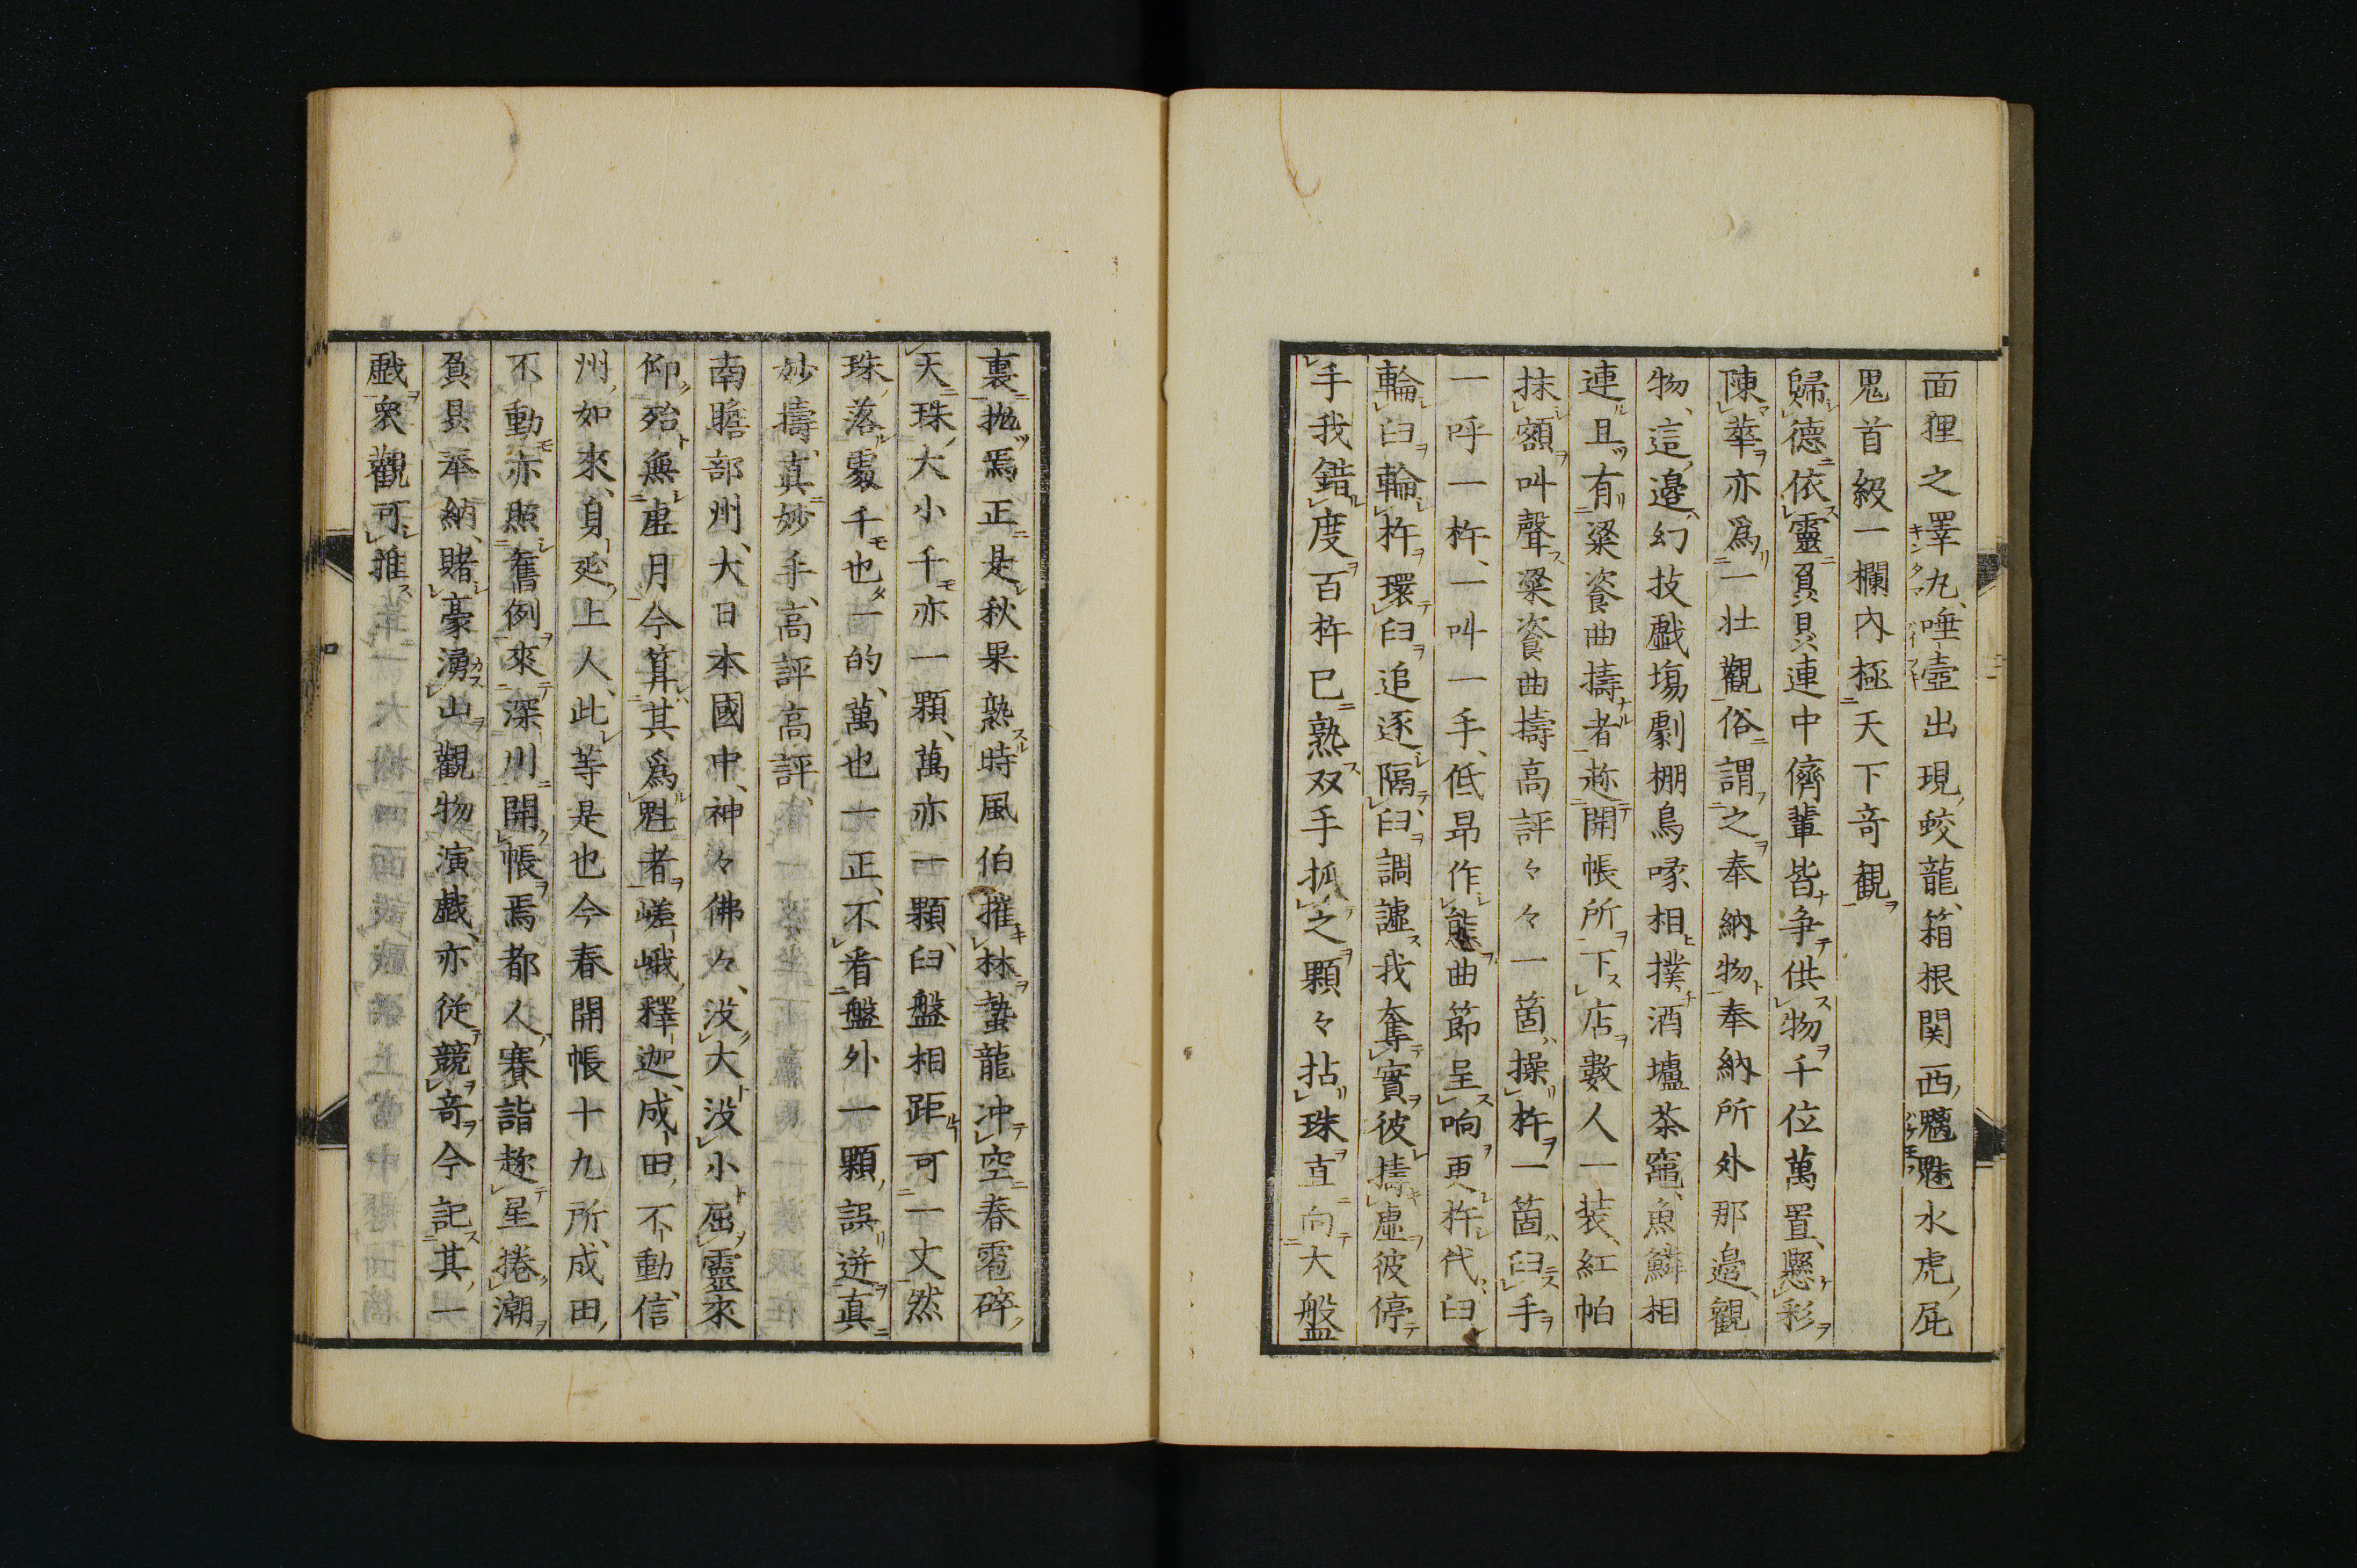 面狸之睪丸、唾壺出現、蛟龍、箱根関西、魑魅水虎、屁
鬼首級一欄内極天下奇観
歸德依靈負具連中儕輩皆争供物千位萬置、懸彩
陳華亦爲一壮觀俗謂之奉納物奉納所外那邉、觀
物、這邉、幻技戯塲劇棚鳥喙相撲酒壚茶竈、魚鱗相
連且有粱餈曲擣者趂開帳所下店數人一装、紅帕
抹額叫聲粱餈曲擣高評々々一箇操杵一箇臼手
一呼一杵、一叫一手、低昂作態曲節呈响更杵代臼
輪臼輪杵環臼追逐隔臼調謔我奪實彼擣虛彼停
手我錯度百杵已熟双手抓之顆々拈珠直向大盤
裏抛焉正是秋果熟時風伯摧林蟄龍冲空春雹碎
天珠、大小千亦一顆、萬亦一顆、臼盤相距可一丈然
珠落處千也一的、萬也一正、不看盤外一顆誤迸真
妙擣、真妙手、高評高評、
南瞻部州、大日本國中、神々佛々、没大没小屈靈來
仰殆無虛月今算其爲魁者嵯峨釋迦、成田不動、信
州如來、身延上人、此等是也今春開帳十九所、成田
不動亦照舊例來深川開帳焉都人賽詣趂星捲潮
負具奉納、賭豪湧山觀物演戯、亦従競奇今記其一
戯衆觀可推